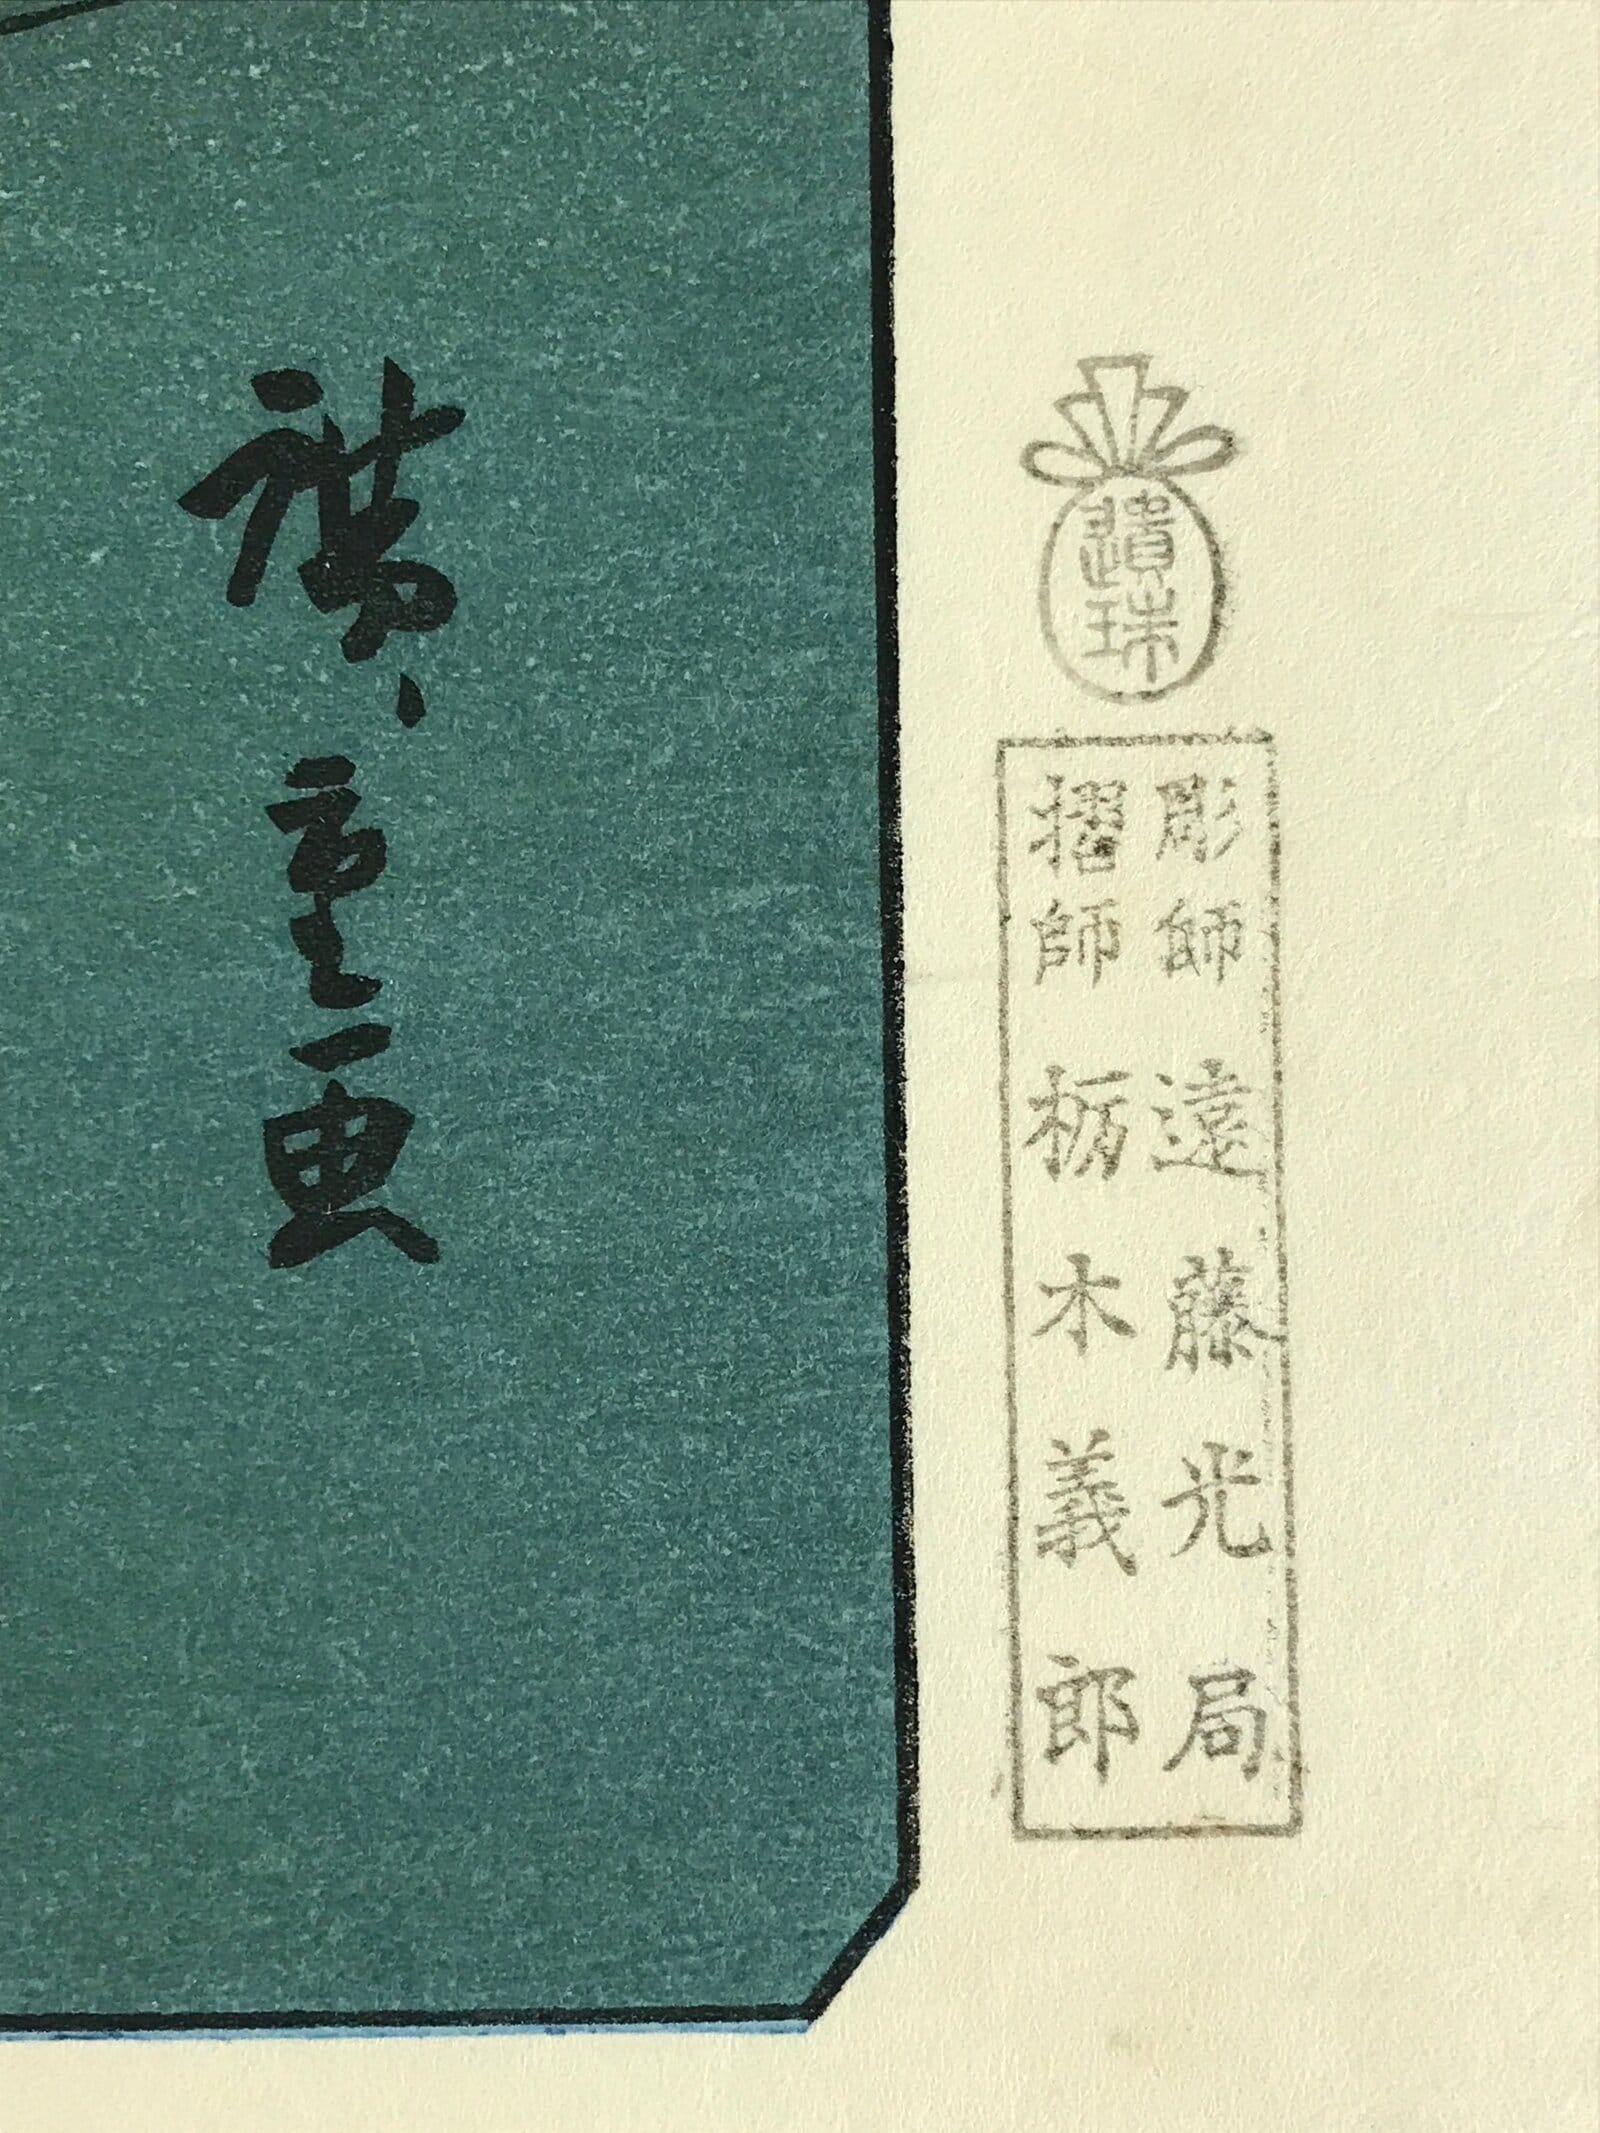 彫師 遠藤光局
摺師 栃木義郎
廣重画